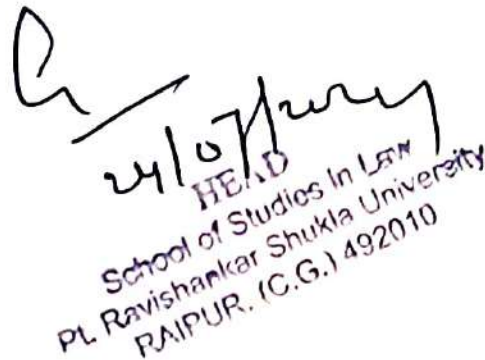 HEAD
School of Studies in Law
Pt. Ravishankar Shukla University
RAIPUR. (C.G.) 492010